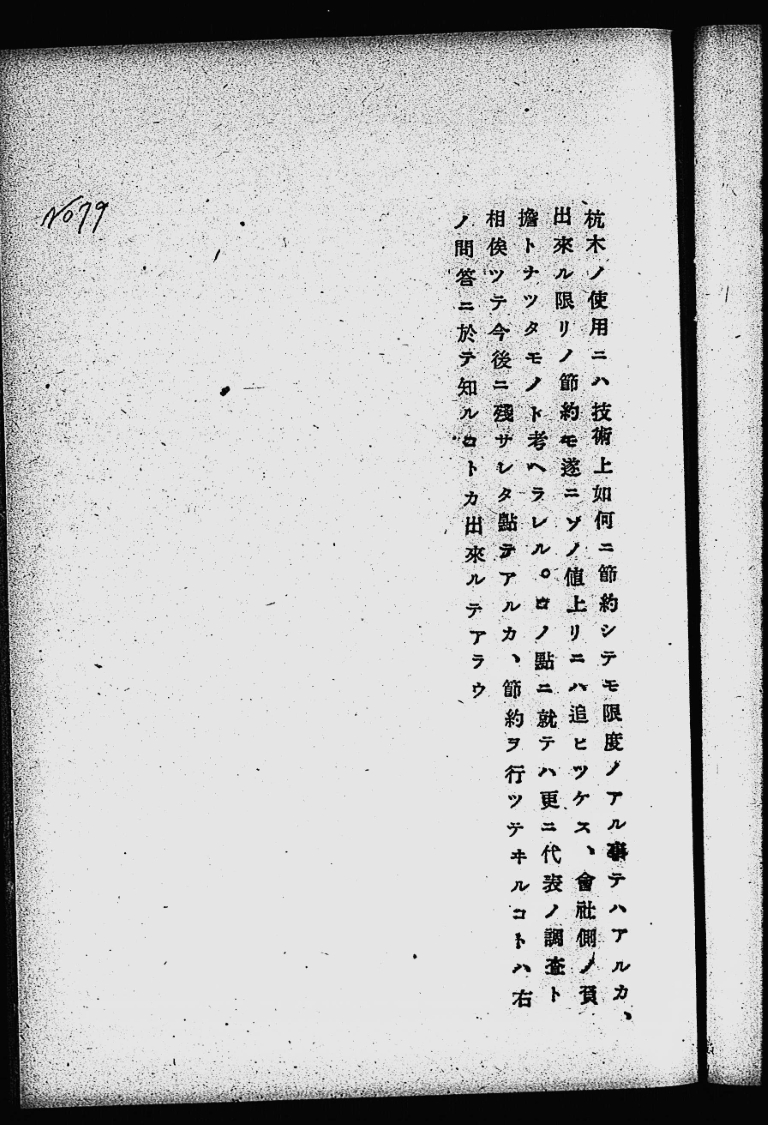 杭木ノ使用ニハ技術上如何ニ節約シテモ限度ノアル事テハアルカ、
出來ル限リノ節約モ遂ニソノ値上リニハ追ヒツケス、會社側ノ負
擔トナツタモノト考ヘラレル。コノ點ニ就テハ更ニ代表ノ調査ト
相俟ツテ今後ニ殘サレタ點テアルカ、節約ヲ行ツテヰルコトハ右
ノ問答ニ於テ知ルコトカ出來ルテアラウ
No 79